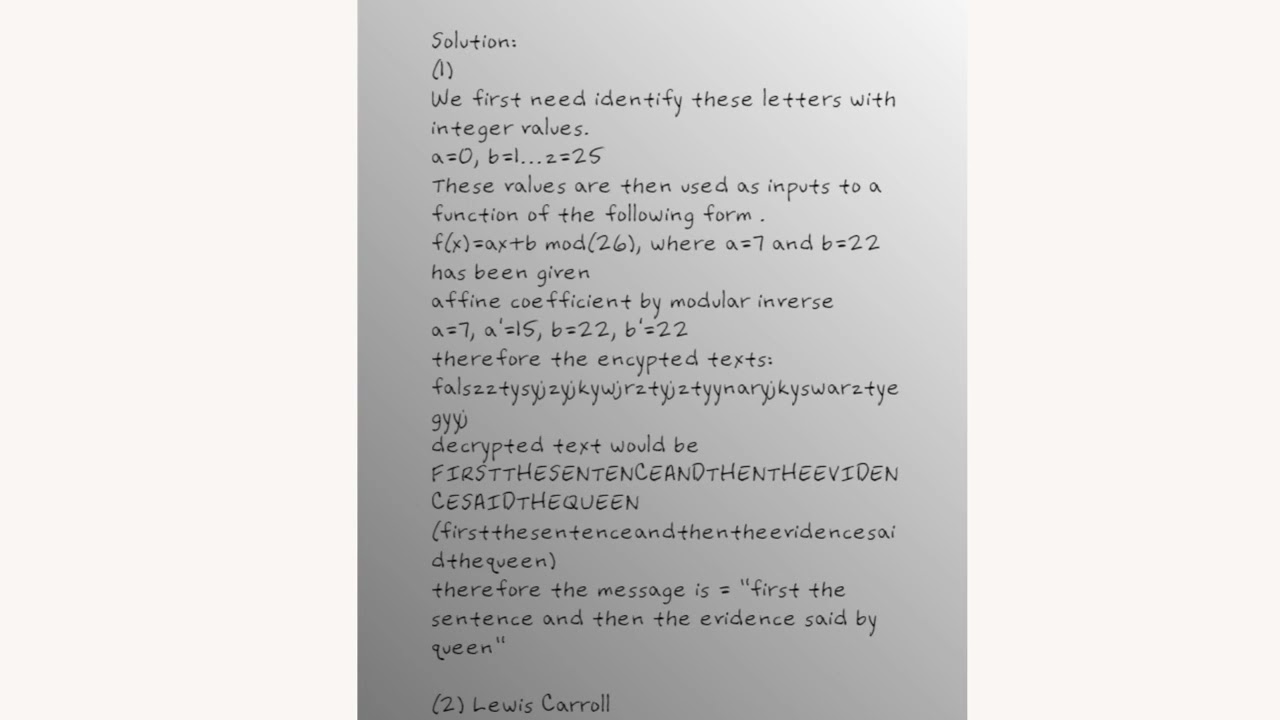 Solution:
(1)
We first need identify these letters with
integer values.
a=0, b=1...z=25
These values are then used as inputs to a
function of the following form .
f(x)=ax+b mod(26), where a=7 and b=22
has been given
affine coefficient by modular inverse
a=7, a'=15, b=22, b'=22
therefore the encypted texts:
falszztysyjzyjkywjrztyjztyynaryjkyswarztye
gyyj
decrypted text would be
FIRSTTHESENTENCEANDTHENTHEEVIDEN
CESAIDTHEQUEEN
(firstthesentenceandthentheevidencesai
dthequeen)
therefore the message is = "first the
sentence and then the evidence said by
queen"
(2) Lewis Carroll